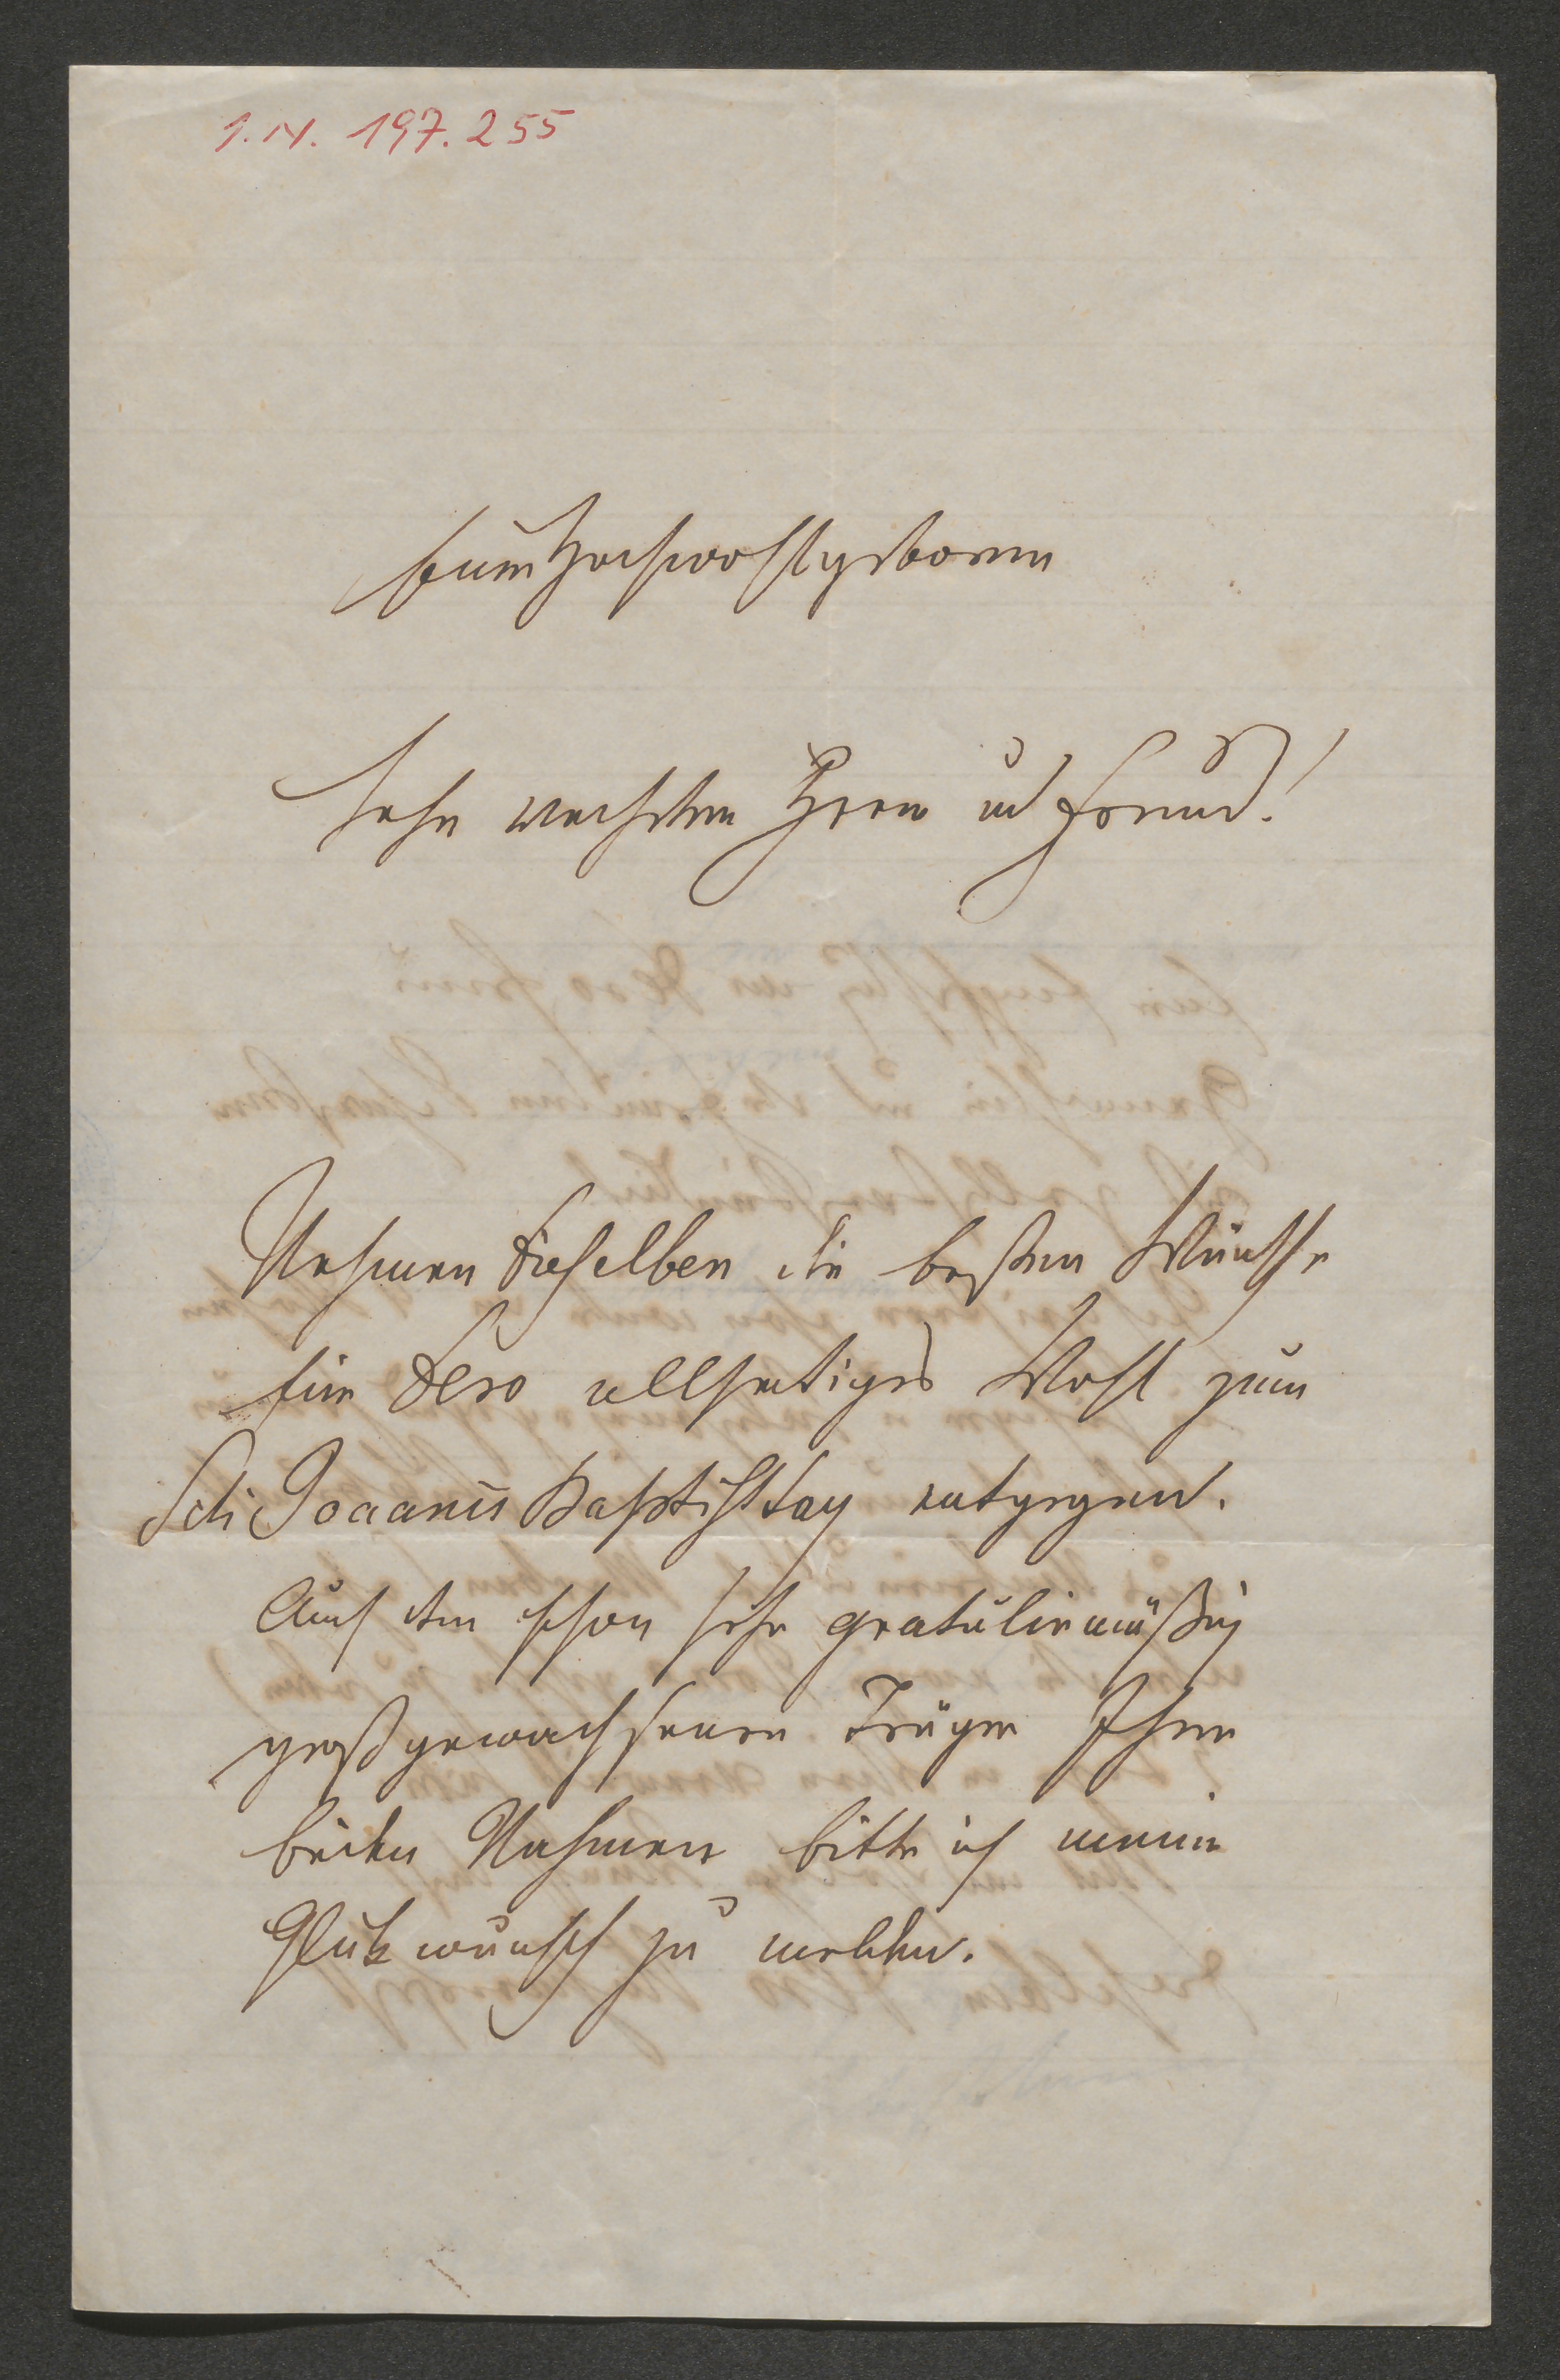 I.N. 197.255
Euer Hochwohlgeboren
Sehr verehrter Herr und Freund!
Nehmen dieselben die besten Wünsche
für dero allseitiges Wohl zum
Scti Joaanis Baptisttag entgegen.
Auch den schon sehr gratulirmäßig
großgewachsenen Träger Ihrer
beiden Nahmen bitte ich meinen
Glükwunsch zu melden.